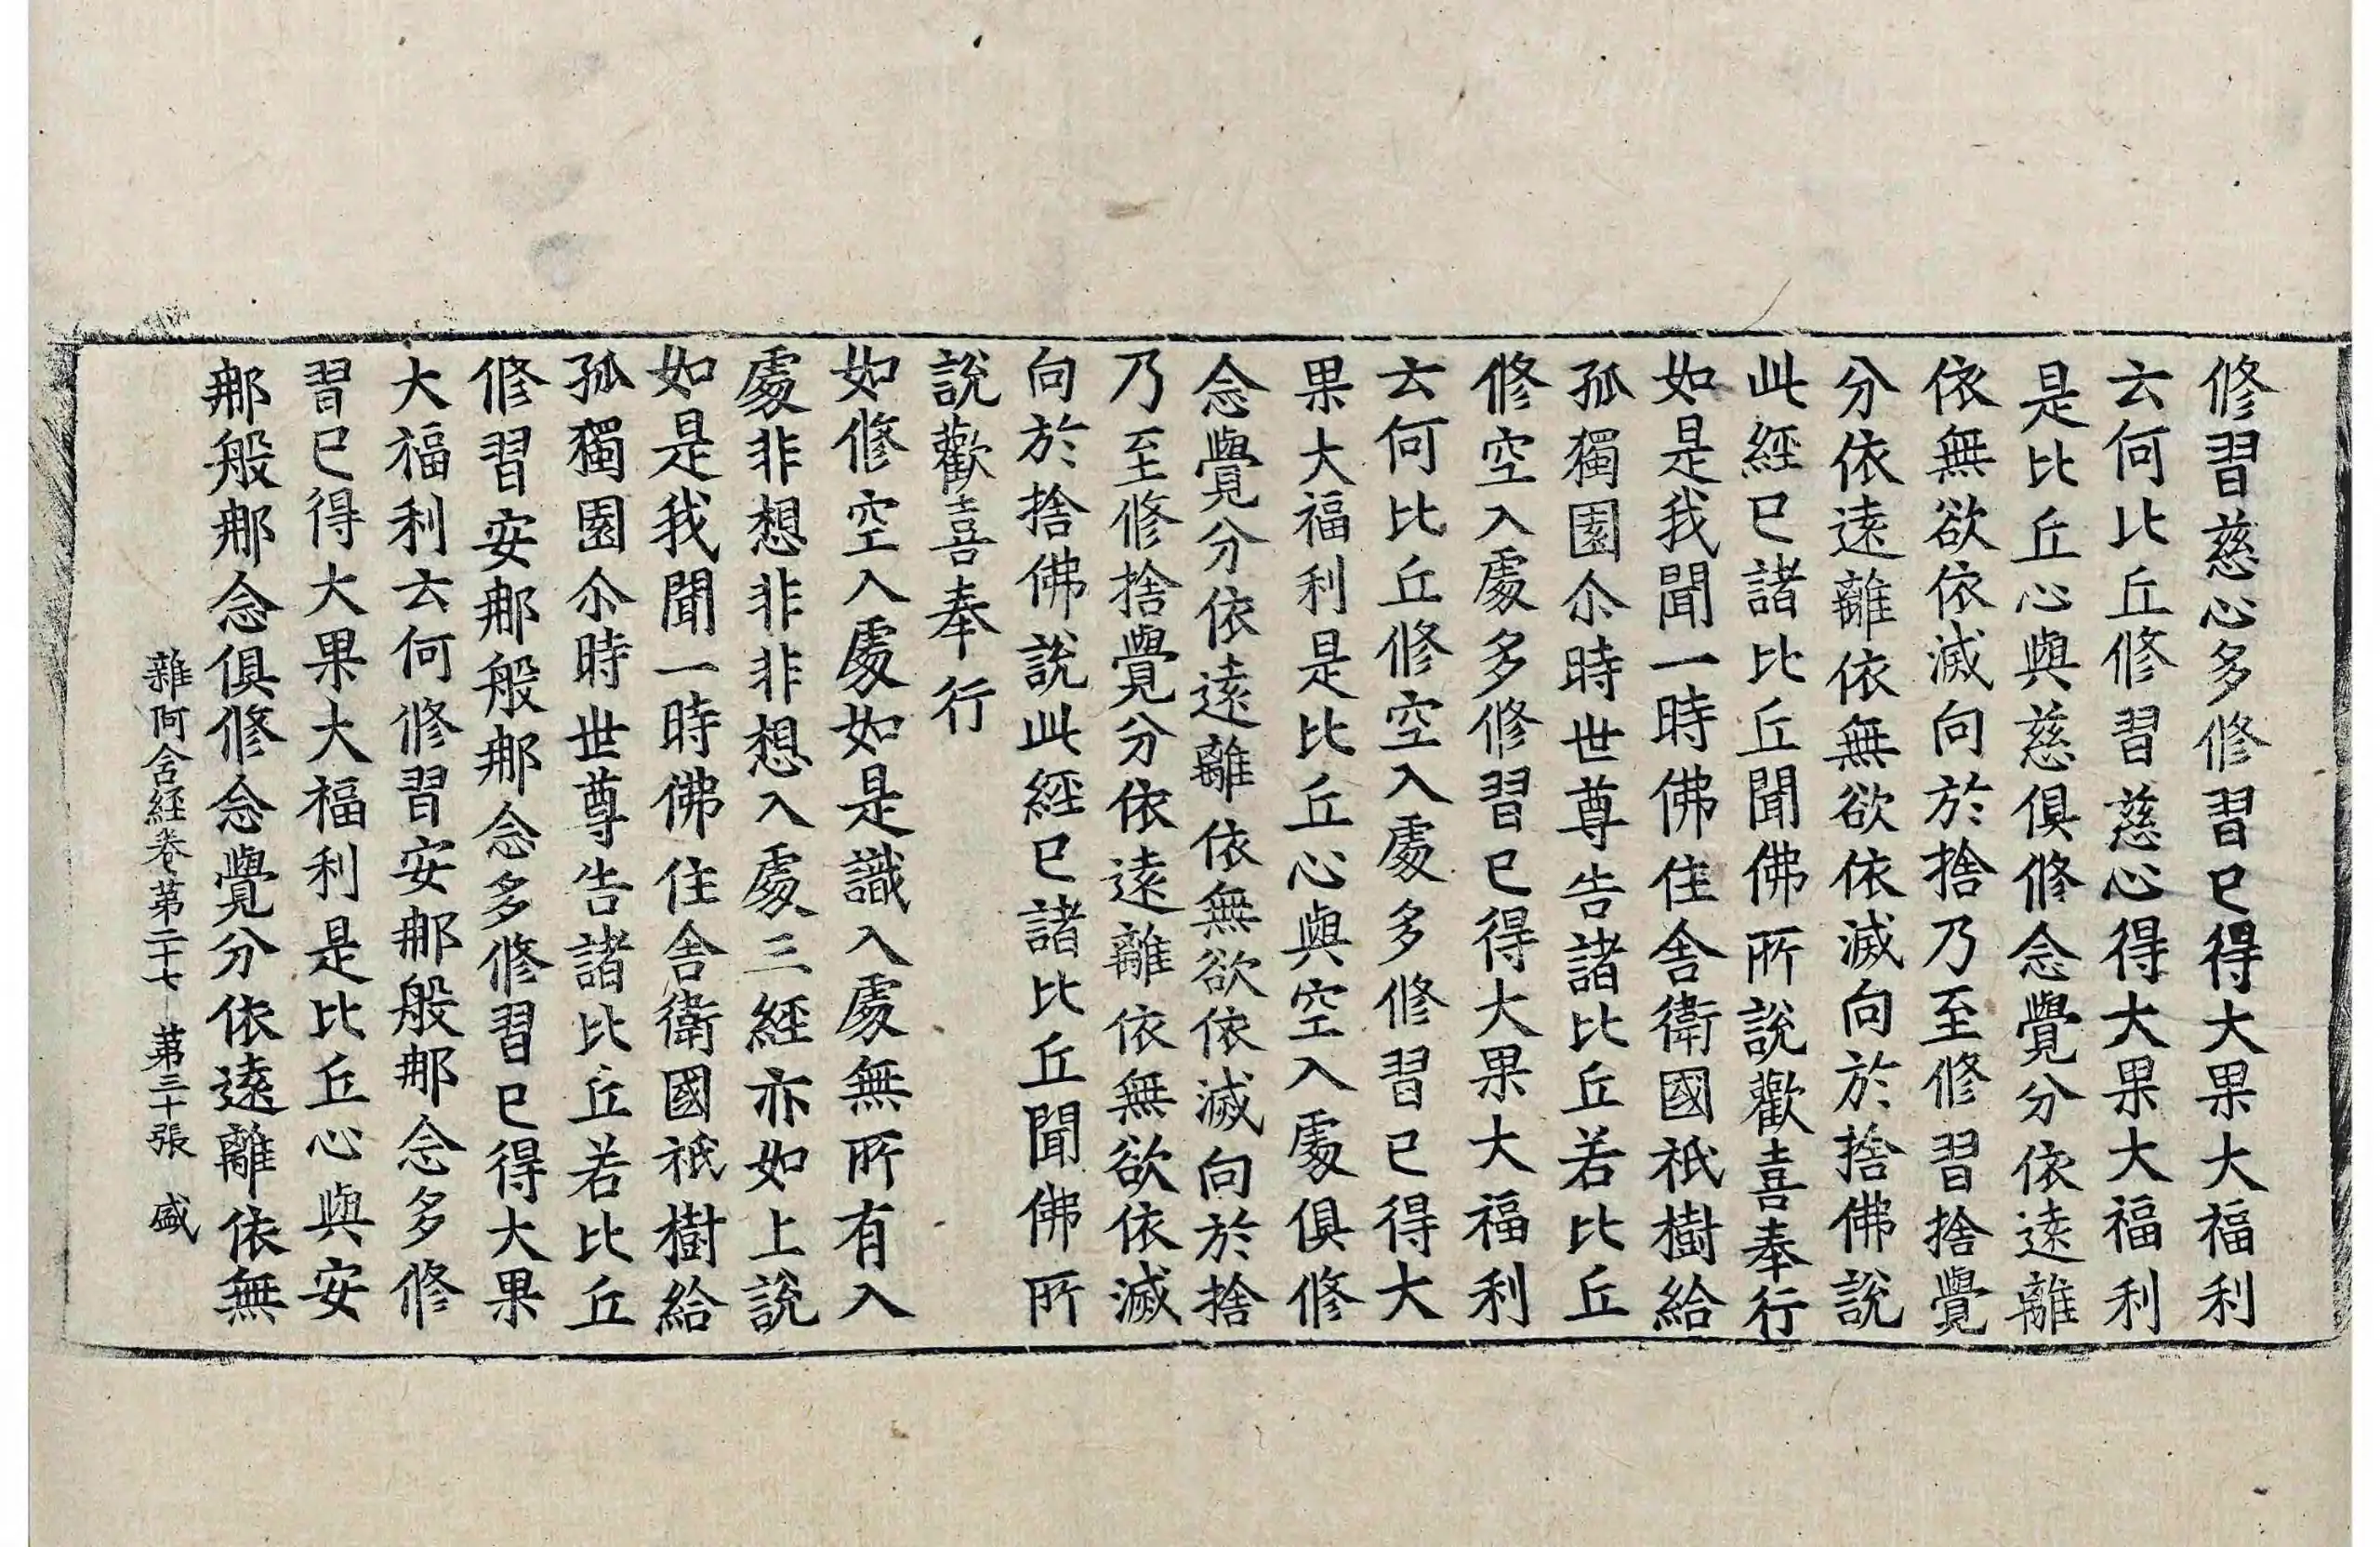 修習慈心多修習已得大果大福利
云何比丘修習慈心得大果大福利
是比丘心與慈俱修念覺分依遠離
依無欲依滅向於捨乃至修習捨覺
分依遠離依無欲依滅向於捨佛說
此經已諸比丘聞佛所說歡喜奉行
如是我聞一時佛住舍衛國祇樹給
孤獨園尒時世尊告諸比丘若比丘
修空入處多修習已得大果大福利
云何比丘修空入處多修習已得大
果大福利是比丘心與空入處俱修
念覺分依遠離依無欲依滅向於捨
乃至修捨覺分依遠離依無欲依滅
向於捨佛說此經已諸比丘聞佛所
說歡喜奉行
如修空入處如是識入處無所有入
處非想非非想入處三經亦如上說
如是我聞一時佛住舍衛國祇樹給
孤獨園尒時世尊告諸比丘若比丘
修習安那般那念多修習已得大果
大福利云何修習安那般那念多修
習已得大果大福利是比丘心與安
那般那念俱修念覺分依遠離依無
雜阿含經卷第二十七 第三十張 盛